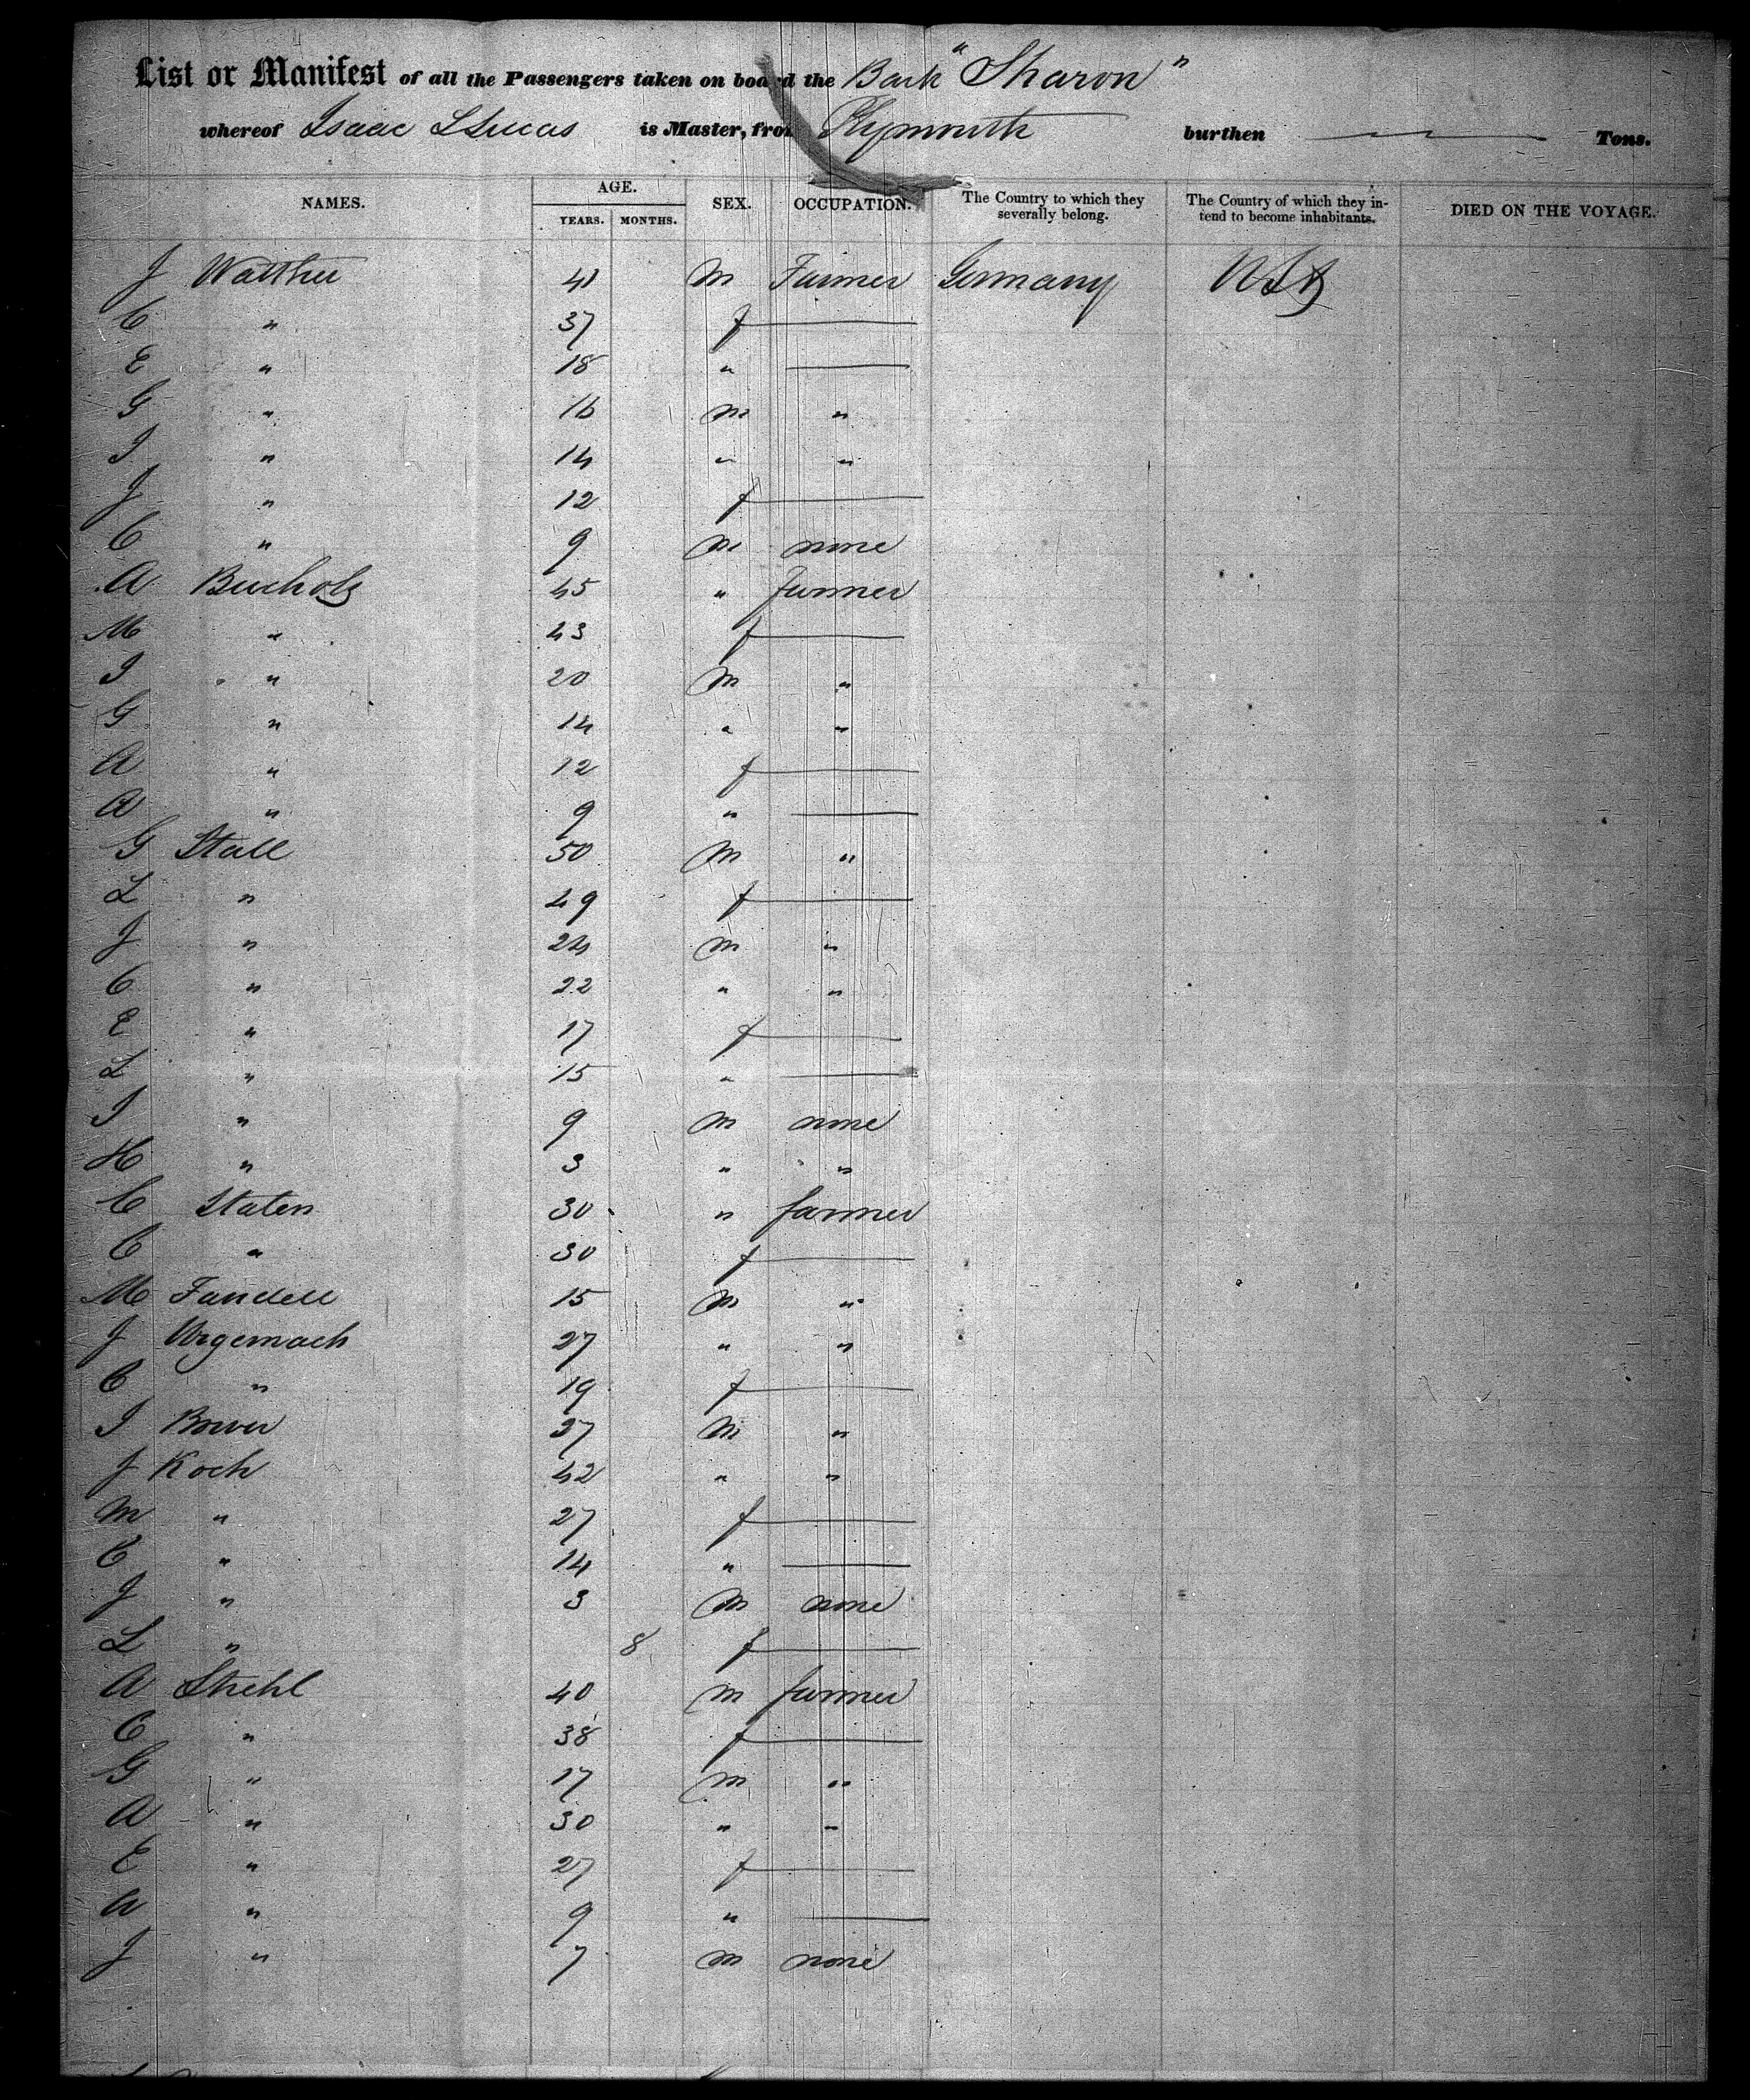 List or Manifest of all the Passengers taken on board the Bark "Sharon"
whereof Isaac is Master, from Plymouth burthen — Tons.
NAMES. AGE. YEARS. MONTHS. SEX. OCCUPATION. The Country to which they severally belong. The Country of which they intend to become inhabitants. DIED ON THE VOYAGE.
J Walther 41 M Farmer Germany USA
C " 37 f —
E " 18 " —
G " 16 m "
I " 14 " "
J " 12 f —
C " 9 m none
A Bucholz 45 " farmer
M " 43 f —
I " 20 m "
G " 14 " "
A " 12 f —
A " 9 " —
G Stall 50 m "
L " 49 f —
J " 24 m "
C " 22 " "
E " 17 f —
L " 15 " —
I " 9 m none
H " 3 " "
C Staten 30 " farmer
C " 30 f —
M 15 m "
J 27 " "
C " 19 f —
I 27 m "
J Koch 42 " "
M " 27 f —
C " 14 " —
J " 3 m none
L " 8 f —
A Strehl 40 m farmer
C " 38 f —
G " 17 m "
A " 30 " "
E " 27 f —
W " 9 " —
J " 7 m none